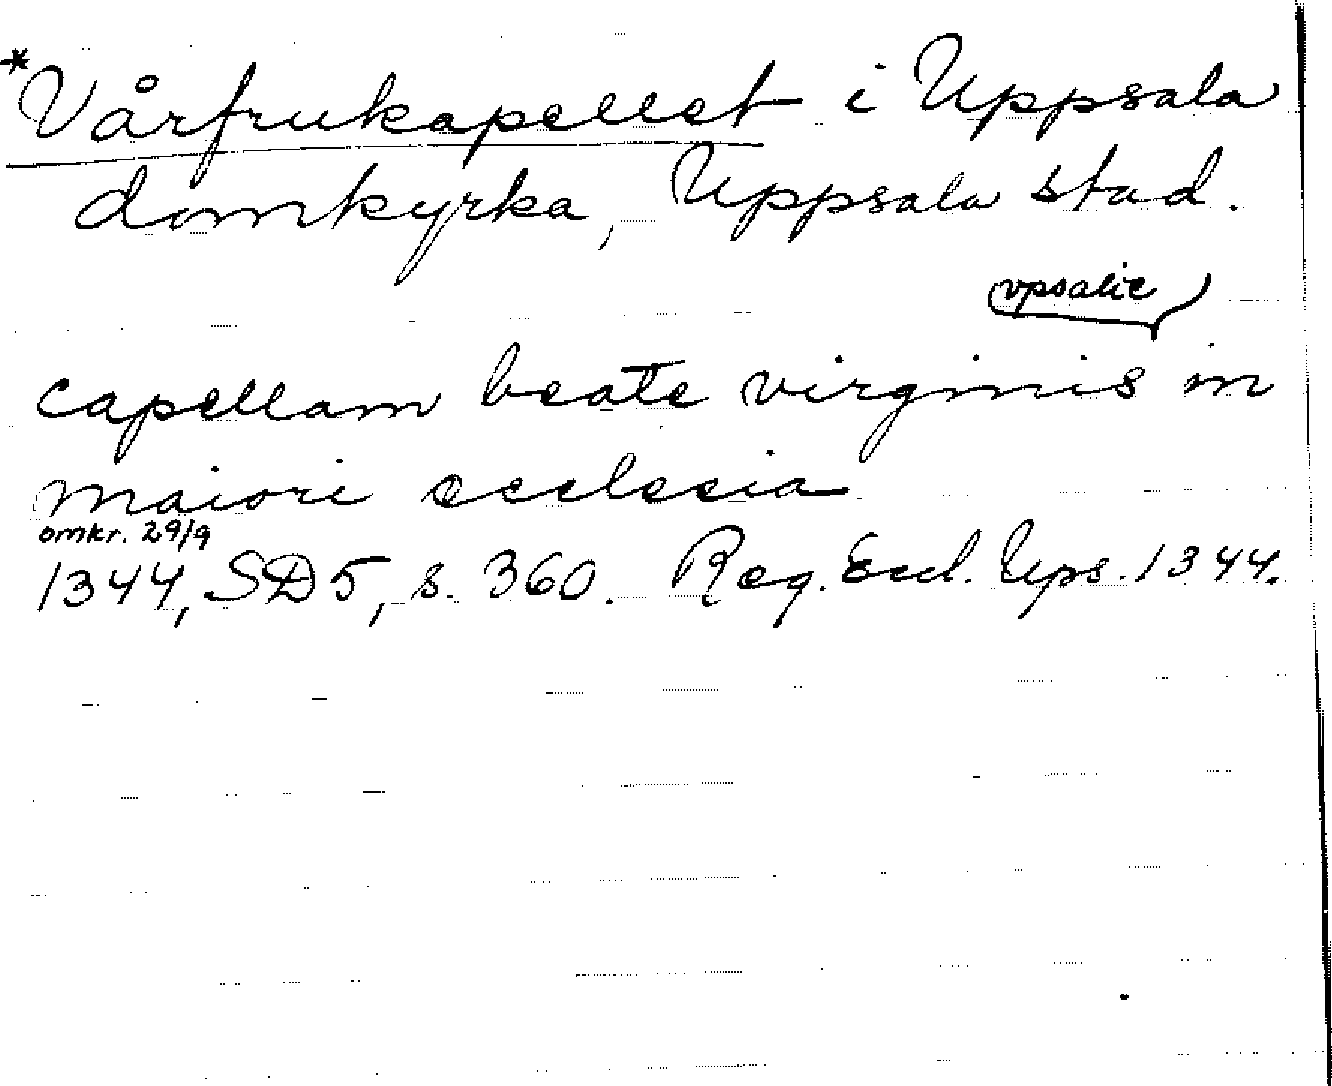 *Vårfrukapellet i Uppsala
domkyrka, Uppsala stad.
vpsalie
capellam beate virginis in
maiori ecclesia
omkr. 29/9
1344, SD 5, s. 360. Reg. Eccl. Ups. 1344.